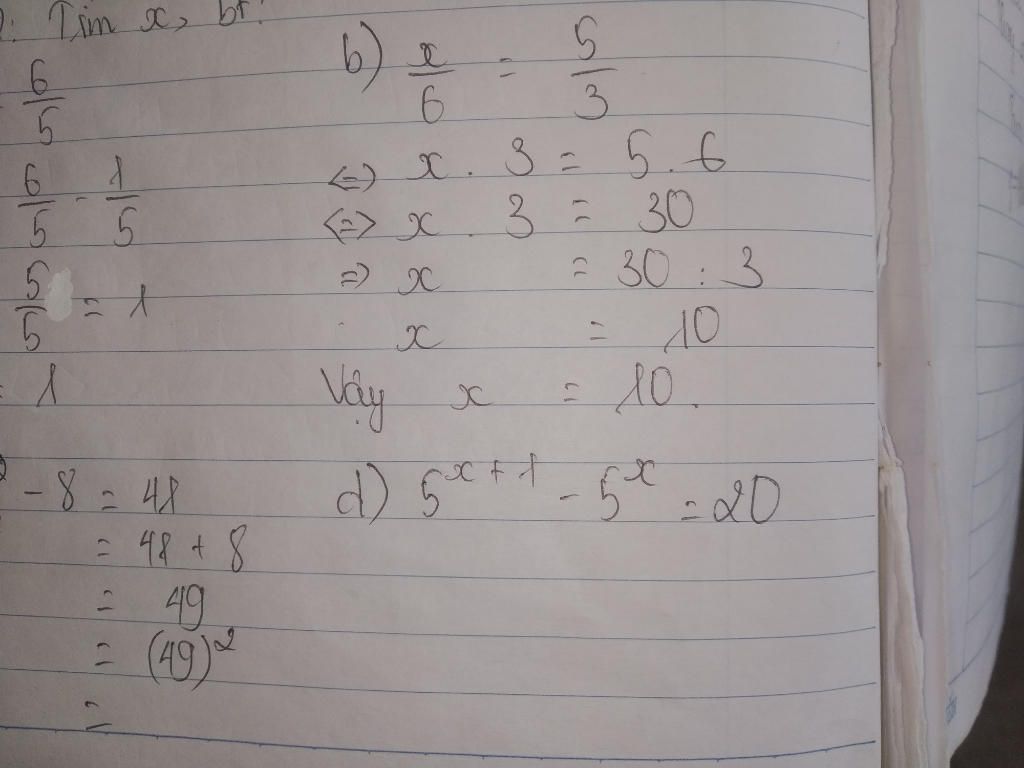 Tìm x, bt:
6/5
6/5 - 1/5
5/5 = 1
= 1
b) x/6 = 5/3
<=> x . 3 = 5 . 6
<=> x . 3 = 30
=> x = 30 : 3
x = 10
Vậy x = 10.
- 8 = 41
= 41 + 8
= 49
= (49)²
=
d) 5^{x+1} - 5^x = 20